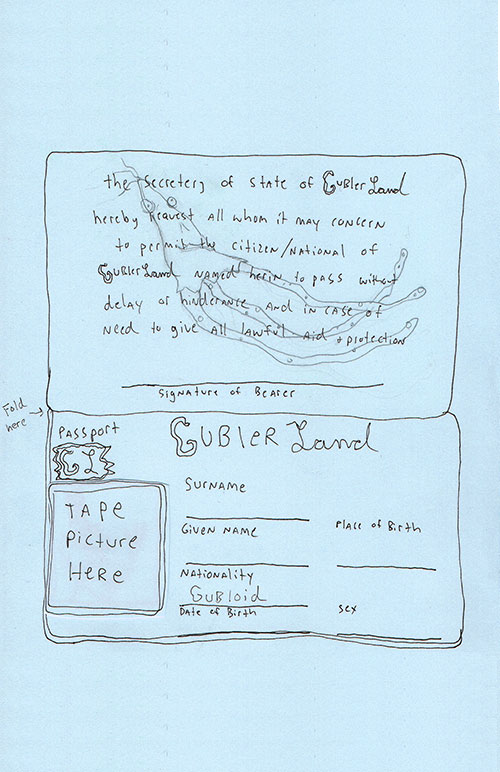 the secretery of state of GUBLER Land
hereby request all whom it may concern
to permit the citizen/National of
GUBLER Land named herin to pass without
delay or hinderance And in case of
need to give all lawful Aid + protection
Signature of Bearer
Fold
here
Passport
GUBLER Land
GL
SURNAME
TAPE
Picture
HERE
GIVEN NAME
Place of Birth
Nationality
Gubloid
Date of Birth
sex